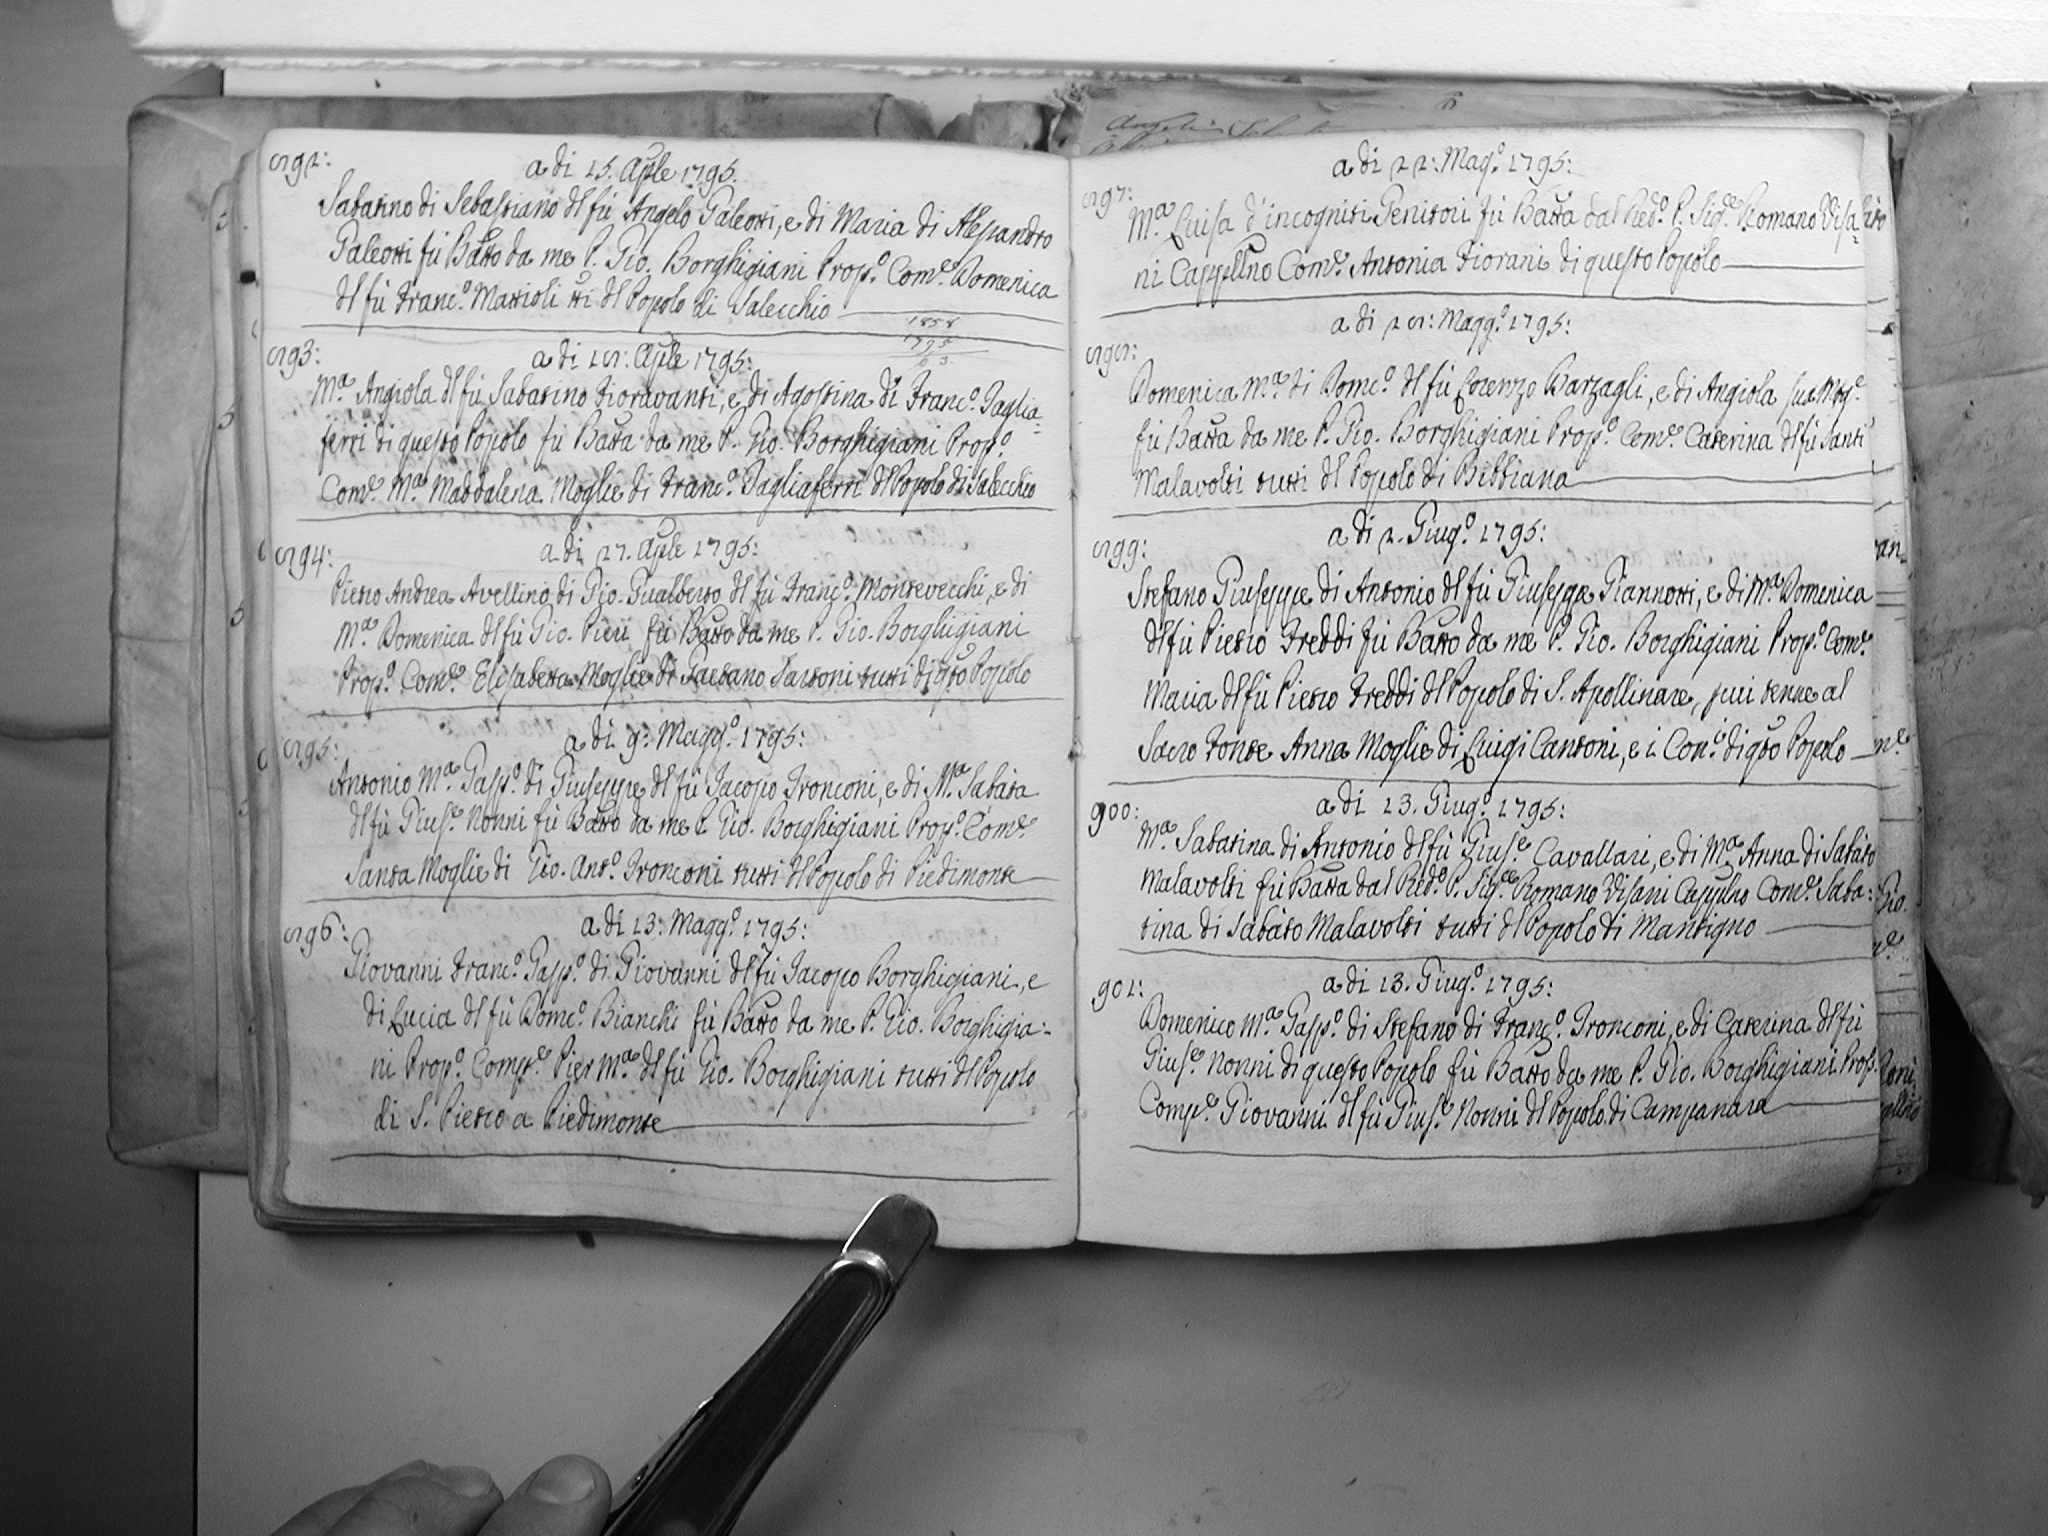 892:
a di 15. Aple 1795.
Sabatino di Sebastiano dl fù Angelo Galeotti, e di Maria di Alessandro
Galeotti fù Batto da me P. Gio. Borghigiani Prop.o Com.e Domenica
dl fù Franc.o Mattioli tti dl Popolo di Salecchio
1858
1795
63
893:
a di 18: Aple 1795:
M.a Angiola dl fù Sabatino Fioravanti, e di Agostina di Franc.o Taglia=
ferri di questo Popolo fù Batta da me P. Gio. Borghigiani Prop.o
Com.e M.a Maddalena Moglie di Franc.o Tagliaferri dl Popolo di Salecchio
894:
a di 27. Aple 1795:
Pietro Andrea Avellino di Gio. Gualberto dl fù Franc.o Montevecchi, e di
M.a Domenica dl fù Gio. Pieri fù Batto da me P. Gio. Borghigiani
Prop.o Com.e Elisabetta Moglie di Gaetano Sartoni tutti di qsto Popolo
895:
a di 9: Magg.o 1795:
Antonio M.a Gasp.o di Giuseppe dl fù Jacopo Tronconi, e di M.a Sabata
dl fù Gius.e Nonni fù Batto da me P. Gio. Borghigiani Prop.o Com.e
Santa Moglie di Gio. Ant.o Tronconi tutti dl Popolo di Piedimonte
896:
a di 13: Magg.o 1795:
Giovanni Franc.o Gasp.o di Giovanni dl fù Jacopo Borghigiani, e
di Lucia dl fù Dom.co Bianchi fù Batto da me P. Gio. Borghigia=
ni Prop.o Comp.e Pier M.a dl fù Gio. Borghigiani tutti dl Popolo
di S. Pietro a Piedimonte
a di 22: Mag.o 1795:
897:
M.a Luisa d'incogniti Genitori fù Batta dal Red.o P. Sig.e Romano Visa=
ni Cappellno Com.e Antonia Fiorani di questo Popolo
a di 28: Magg.o 1795:
898:
Domenica M.a di Dom.co dl fù Lorenzo Barzagli, e di Angiola sua Mog.e
fù Batta da me P. Gio. Borghigiani Prop.o Com.e Caterina dl fù Santi
Malavolti tutti dl Popolo di Bibbiana
a di 2. Giug.o 1795:
899:
Stefano Giuseppe di Antonio dl fù Giuseppe Giannotti, e di M.a Domenica
dl fù Pietro Freddi fù Batto da me P. Gio. Borghigiani Prop.o Com.e
Maria dl fù Pietro Freddi dl Popolo di S. Apollinare, p lei tenne al
Sacro Fonte Anna Moglie di Luigi Cantoni, e i Con.i di qsto Popolo
900:
a di 13. Giug.o 1795:
M.a Sabatina di Antonio dl fù Gius.e Cavallari, e di M.a Anna di Sabato
Malavolti fù Batta dal Red.o P. Sig.e Romano Visani Cappllno Com.e Saba=
tina di Sabato Malavolti tutti dl Popolo di Mantigno
901:
a di 13. Giug.o 1795:
Domenico M.a Gasp.o di Stefano di Franc.o Tronconi, e di Caterina dl fù
Gius.e Nonni di questo Popolo fù Batto da me P. Gio. Borghigiani Prop.
Comp.e Giovanni dl fù Gius.e Nonni dl Popolo di Campanara